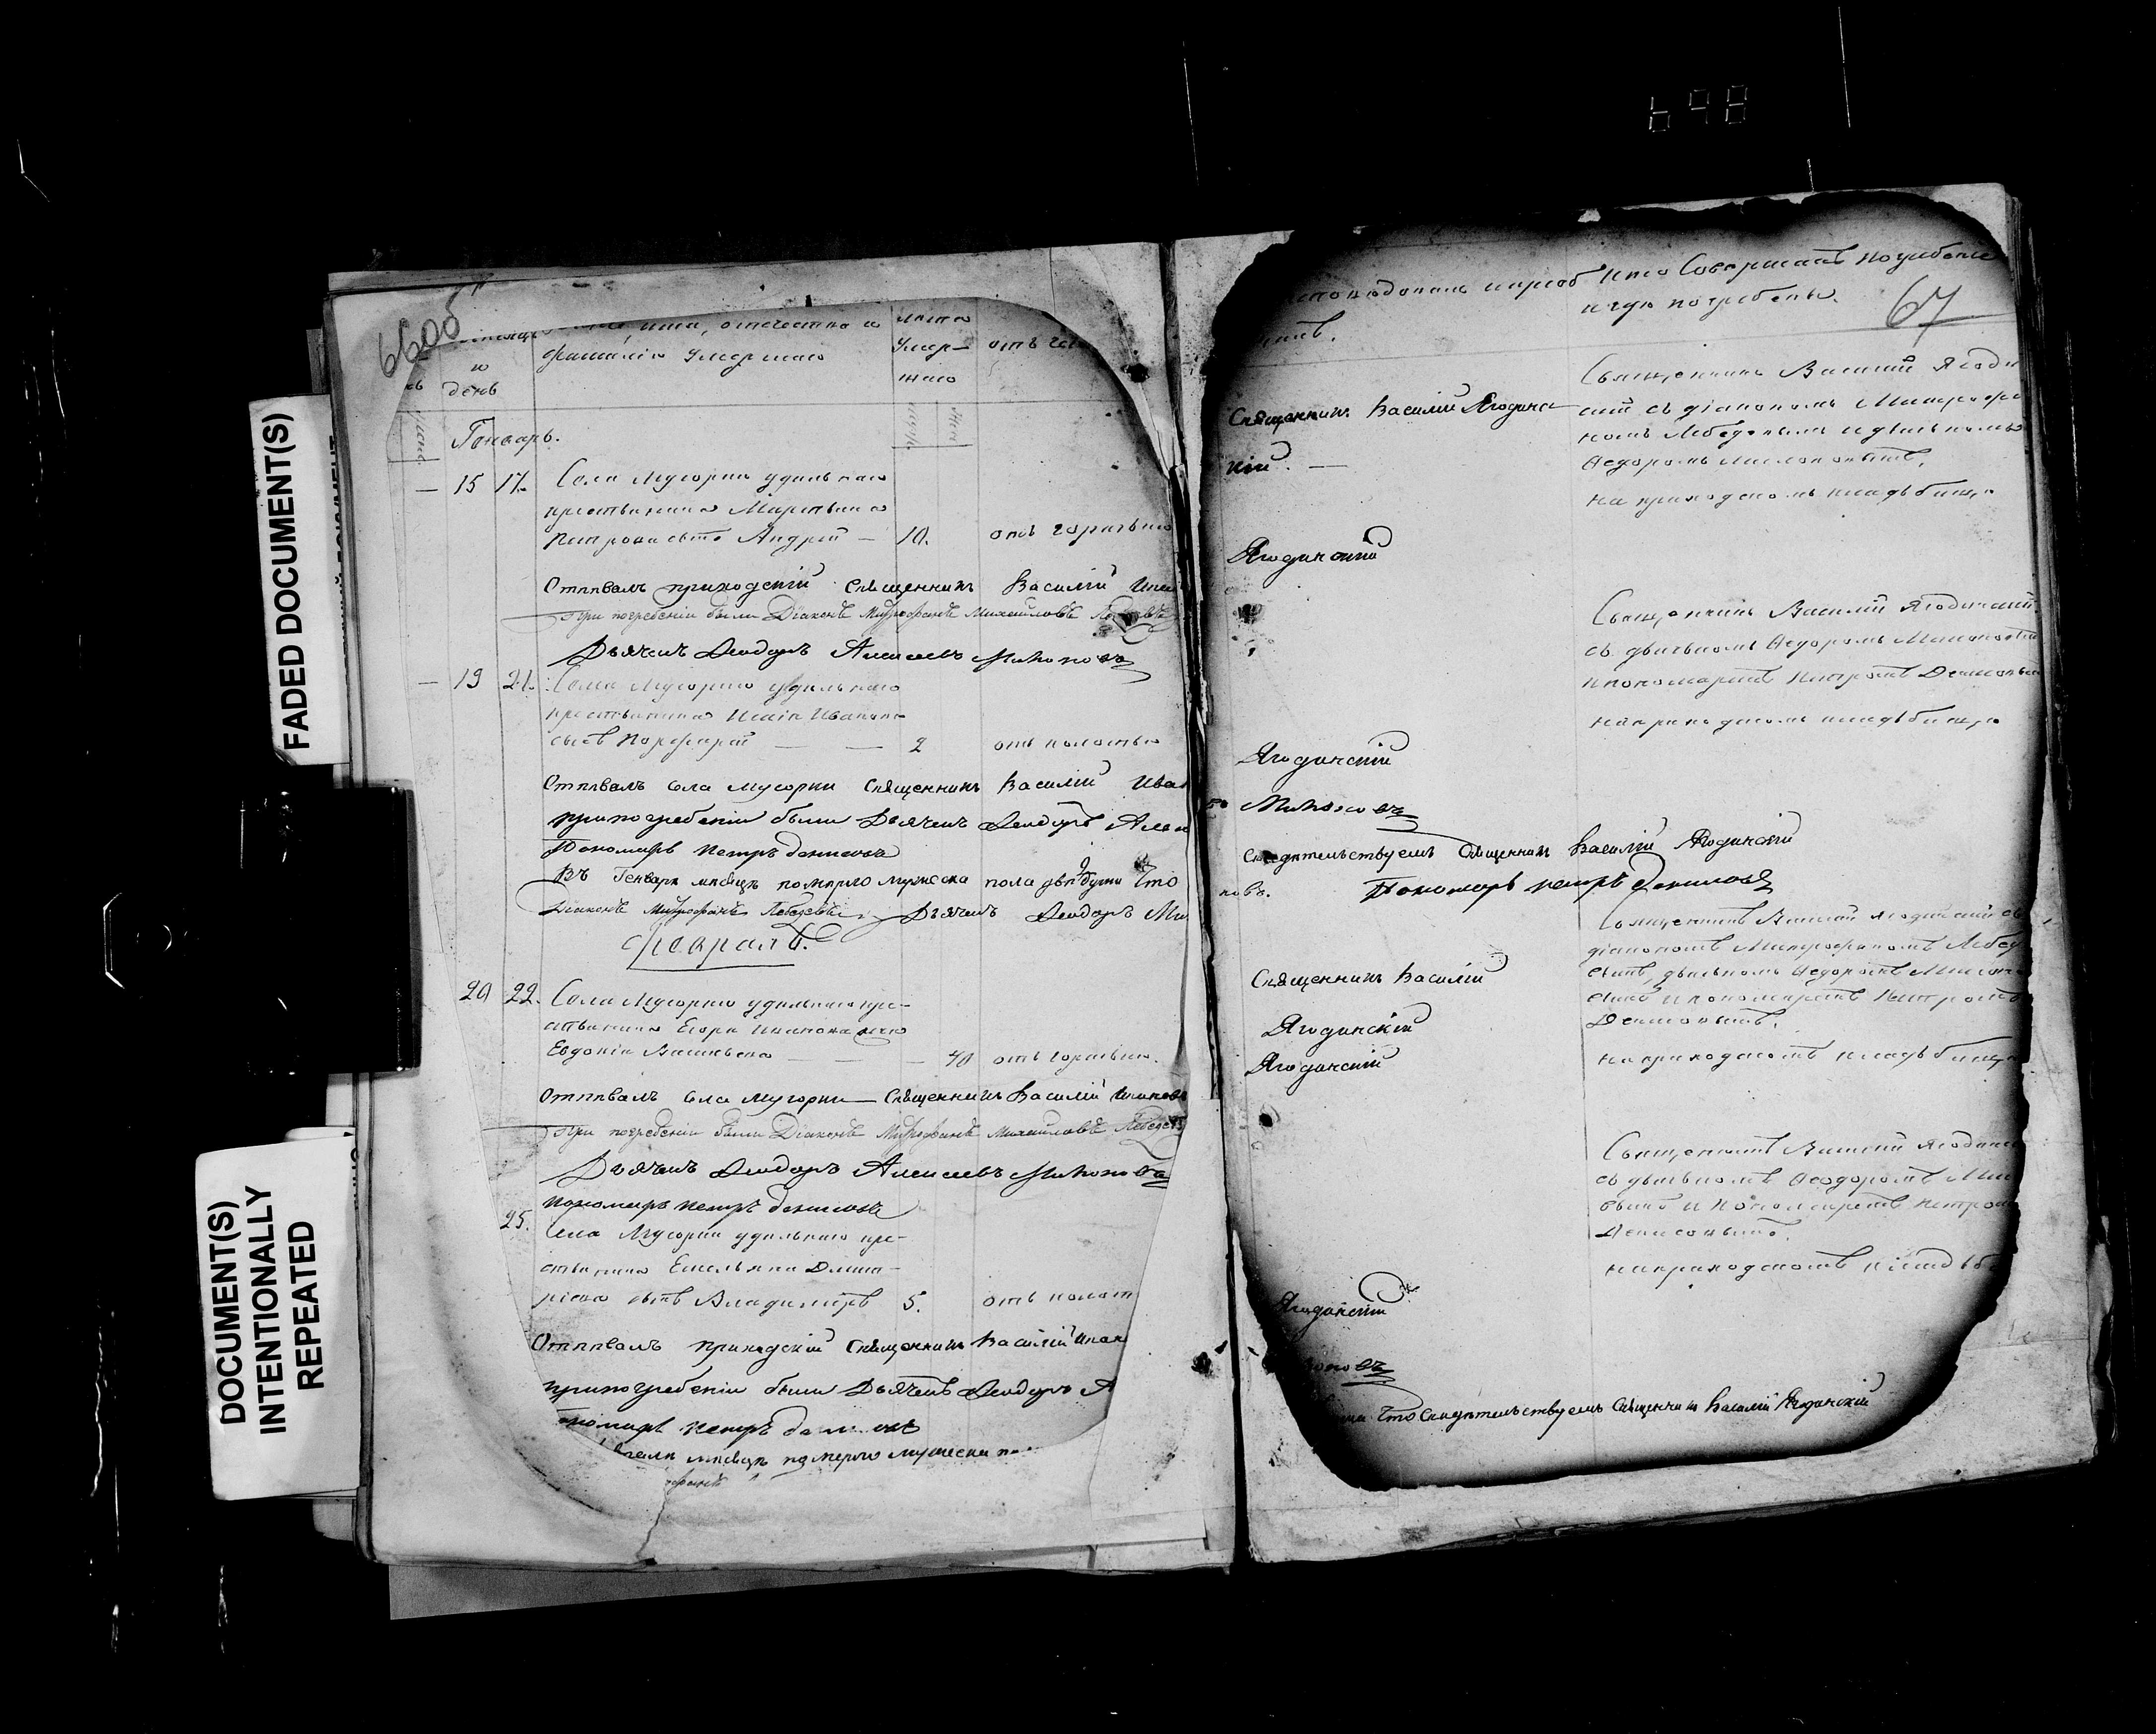 698
FADED DOCUMENT(S)
DOCUMENT(S)
INTENTIONALLY
REPEATED
66об
имя, отечество и
фамилія умершаго
и
день
лета
умер-
шаго
отъ чего
Генварь.
15 17. Села Мусорки удельнаго
крестьянина
Петрова сынъ Андрей — 10. отъ горячки
Отпевалъ приходскій священникъ Василій
При погребеніи были Діаконъ Митрофанъ Михайловъ Лебедевъ
Дьячекъ Феодоръ Алексеевъ Милоновъ
19 21. Села Мусорки удельнаго
крестьянина Исаія Иванова
сынъ Порфирій — — 2 отъ
Отпевалъ села Мусорки священникъ Василій Иван
при погребеніи были Дьячекъ Феодоръ Алек
Пономарь Петръ Денисовъ
Въ Генваре месяце померло мужеска пола две души Что
Діаконъ Митрофанъ Лебедевъ Дьячекъ Феодоръ Ми
Февраль.
20 22. Села Мусорки удельнаго кре-
стьянина Егора Иванова жена
Евдокія Васильева — — 40 отъ горячки.
Отпевалъ села Мусорки — священникъ Василій Иванов
При погребеніи были Діаконъ Митрофанъ Михайловъ Лебедевъ
Дьячекъ Феодоръ Алексеевъ Милоновъ
Пономарь Петръ Денисовъ
25. Села Мусорки удельнаго кре-
стьянина Емельяна Дмит-
ріева сынъ Владиміръ 5. отъ
Отпевалъ приходскій священникъ Василій Иван
при погребеніи были Дьячекъ Феодоръ А
Пономарь Петръ Денисовъ
месяце померло мужеска
67
исповедовалъ и пріоб
кто совершалъ погребеніе
и где погребены.
Священникъ Василій Ягодинс
кій. —
Священникъ Василій Ягодин
скій съ діакономъ Митрофа
номъ Лебедевымъ и дьячкомъ
Федоромъ Милоновымъ,
на приходскомъ кладбище
Ягодинскій
Священникъ Василій Ягодинскій
съ дьячкомъ Федоромъ Милоновым
и пономаремъ Петромъ Денисовым
на приходскомъ кладбище
Ягодинскій
Милоновъ
свидетельствуемъ Священникъ Василій Ягодинскій
новъ. Пономарь Петръ Денисовъ
Священникъ Василій Ягодинскій съ
діакономъ Митрофаномъ Лебед
евымъ, дьячкомъ Федоромъ Милоно
вымъ и пономаремъ Петромъ
Денисовымъ.
на приходскомъ кладбище
Священникъ Василій
Ягодинскій
Ягодинскій
Священникъ Василій Ягодинс
съ дьячкомъ Феодоромъ Мил
вымъ и пономаремъ Петром
Денисовымъ.
на приходскомъ кладб
Ягодинскій
оновъ
Что свидетельствуемъ Священникъ Василій Ягодинскій